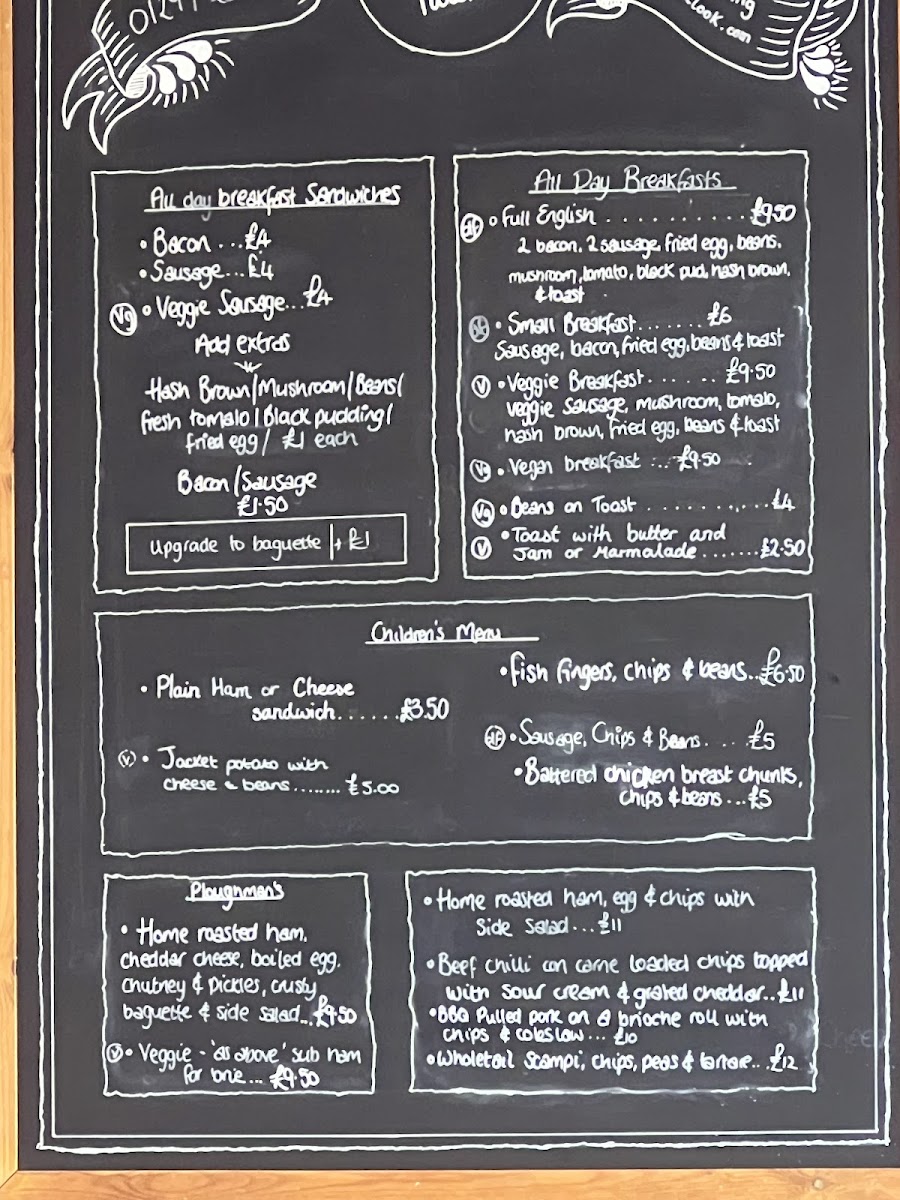 look.com
All day breakfast Sandwiches
• Bacon ... £4
• Sausage ... £4
Vg • Veggie Sausage... £4
Add extras
Hash Brown/Mushroom/Beans/
fresh tomato/Black pudding/
fried egg/ £1 each
Bacon/Sausage
£1.50
Upgrade to baguette |+ £1
All Day Breakfasts
• Full English . . . . . . . . . . . £9.50
2 bacon, 2 sausage, fried egg, beans,
mushroom, tomato, black pud, hash brown,
& toast
• Small Breakfast....... £6
Sausage, bacon, fried egg, beans & toast
V • Veggie Breakfast....... £9.50
veggie sausage, mushroom, tomato,
hash brown, fried egg, beans & toast
Vg • Vegan breakfast .... £9.50
Vg • Beans on Toast . . . . . . . . . . . £4
V • Toast with butter and
Jam or Marmalade.......£2.50
Children's Menu
• Plain Ham or Cheese
sandwich......£3.50
V • Jacket potato with
cheese & beans........ £5.00
• Fish fingers, chips & beans...£6.50
• Sausage, Chips & Beans.... £5
• Battered chicken breast chunks,
chips & beans ... £5
Ploughman's
• Home roasted ham,
cheddar cheese, boiled egg,
chutney & pickles, crusty
baguette & side salad...£9.50
V • Veggie - 'as above' sub ham
for brie... £9.50
• Home roasted ham, egg & chips with
side salad...£11
• Beef chilli con carne loaded chips topped
with sour cream & grated cheddar..£11
• BBQ Pulled pork on a brioche roll with
chips & coleslaw... £10
• Wholetail Scampi, chips, peas & tartare...£12